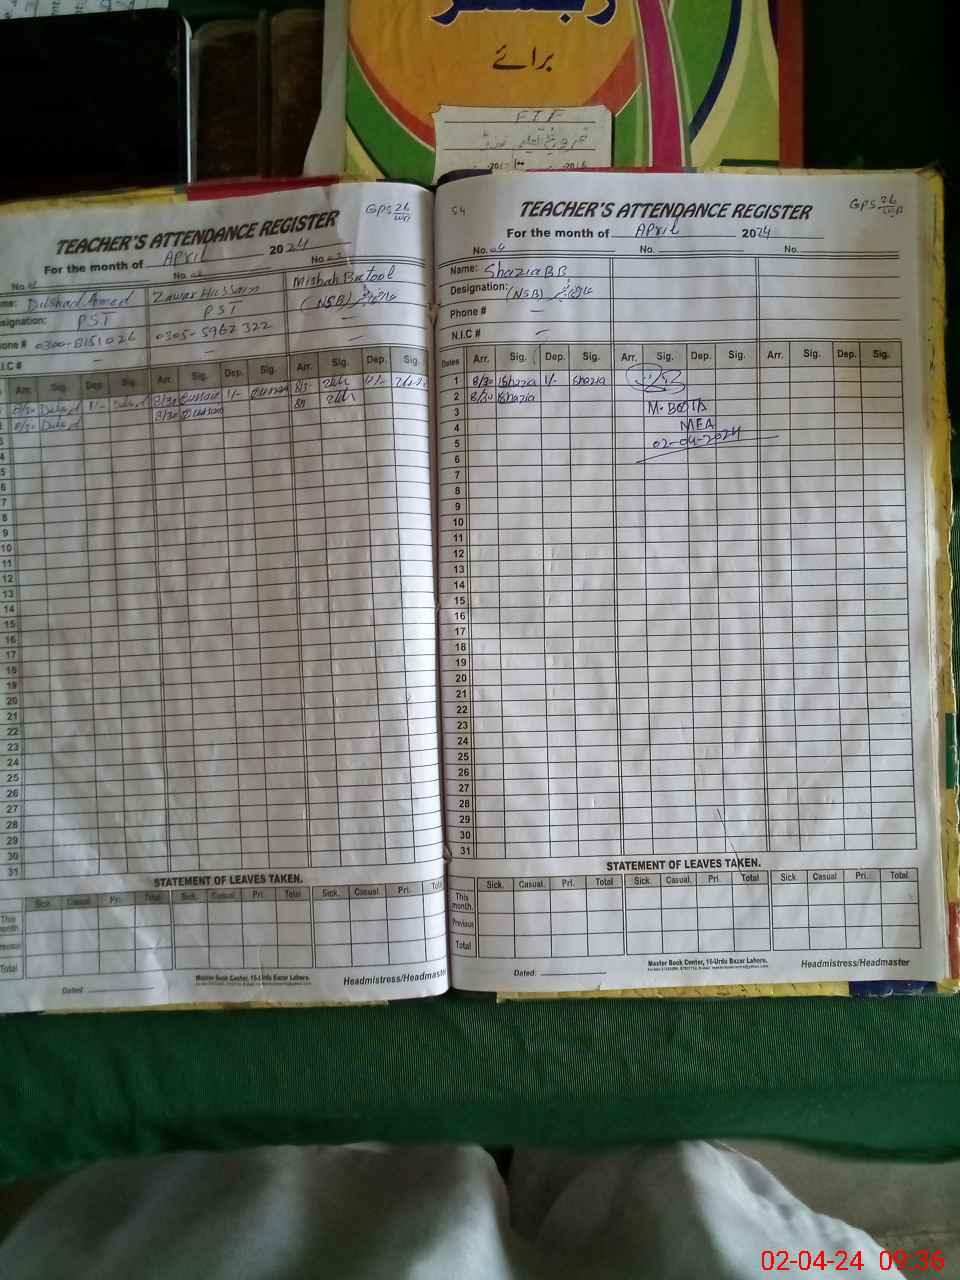 رجسٹر
برائے
F I F
فروغ تعلیم فنڈ
GPS 26/WB
TEACHER'S ATTENDANCE REGISTER
For the month of April 2024
No. 01 No. 02 No. 03
Name: Dilshad Ahmed Zawar Hussain Misbah Batool
Designation: PST PST (NSB) عارضی ٹیچر
Phone # 0300-8151026 0305-5962322 —
N.I.C # — — —
Arr. Sig. Dep. Sig. Arr. Sig. Dep. Sig. Arr. Sig. Dep. Sig.
8/30 1/- 8/30 1/- 8/3 1/-
8/30 8/30
3
4
5
6
7
8
9
10
11
12
13
14
15
16
17
18
19
20
21
22
23
24
25
26
27
28
29
30
31
STATEMENT OF LEAVES TAKEN.
Sick. Casual. Pri. Total Sick. Casual. Pri. Total Sick. Casual. Pri. Total
This month.
Previous
Total
Dated:
Master Book Center, 15-Urdu Bazar Lahore.
Headmistress/Headmaster
54
TEACHER'S ATTENDANCE REGISTER
GPS 26/WB
For the month of April 2024
No. 04 No. No.
Name: Shazia BB
Designation: (NSB) عارضی ٹیچر
Phone # —
N.I.C # —
Dates Arr. Sig. Dep. Sig. Arr. Sig. Dep. Sig. Arr. Sig. Dep. Sig.
1 8/30 Shazia 1/- Shazia
2 8/30 Shazia
3 M. BOOTA
4 MEA
5 02-04-2024
6
7
8
9
10
11
12
13
14
15
16
17
18
19
20
21
22
23
24
25
26
27
28
29
30
31
STATEMENT OF LEAVES TAKEN.
Sick. Casual. Pri. Total Sick. Casual. Pri. Total Sick. Casual Pri. Total
This month.
Previous
Total
Dated:
Master Book Center, 15-Urdu Bazar Lahore.
Headmistress/Headmaster
02-04-24 09:36